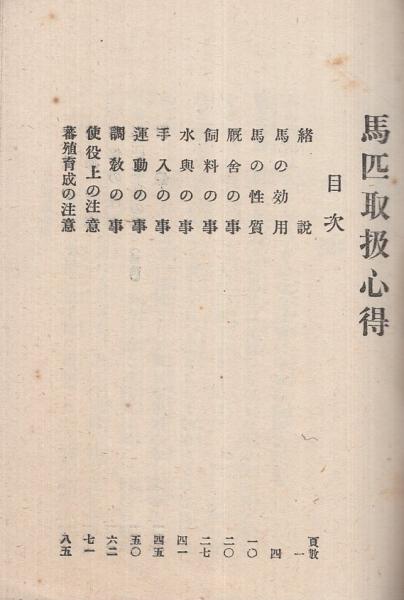 馬匹取扱心得
目次
頁数
緒說 一
馬の効用 四
馬の性質 一〇
厩舎の事 二〇
飼料の事 二七
水與の事 四一
手入の事 四五
運動の事 五〇
調教の事 六二
使役上の注意 七一
蕃殖育成の注意 八五